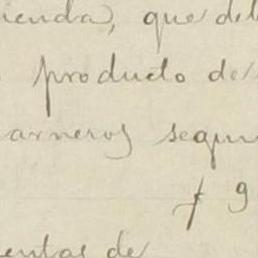 ienda, que deb
producto de
arneros segun
$ 9
entas de